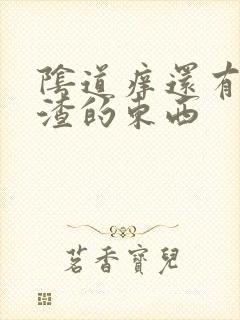 陰道癢還有
渣的東西
茗香寶兒